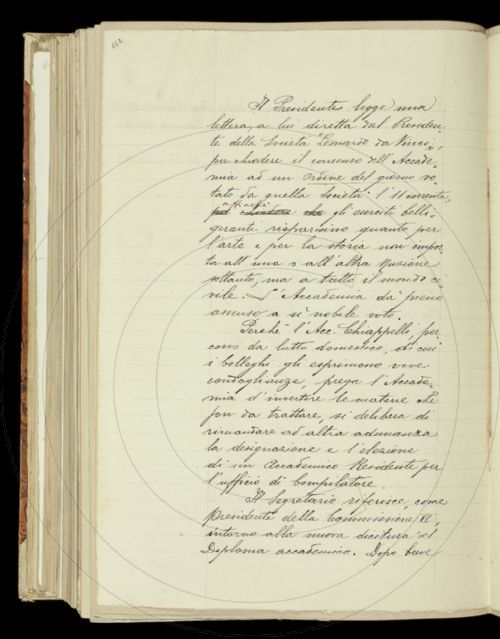 642
Il Presidente legge una
lettera, a lui diretta dal Presiden-
te della Società Leonardo da Vinci,
per chiedere il consenso dell'Accade-
mia ad un ordine del giorno vo-
tato da quella Società l'11 corrente,
affinché
gli eserciti belli-
geranti risparmino quanto per
l'arte e per la storia non impor-
ta all'una o all'altra Nazione
soltanto, ma a tutto il mondo ci-
vile. L'Accademia dà pieno
assenso a sì nobile voto.
Perché l'Acc. Chiappelli, per-
cosso da lutto domestico, di cui
i Colleghi gli esprimono vive
condoglianze, prega l'Accade-
mia d'invertire le materie che
son da trattare, si delibera di
rimandare ad altra adunanza
la designazione e l'elezione
di un Accademico Residente per
l'ufficio di Compilatore.
Il Segretario riferisce, come
Presidente della Commissione
intorno alla nuova dicitura del
Diploma accademico. Dopo breve